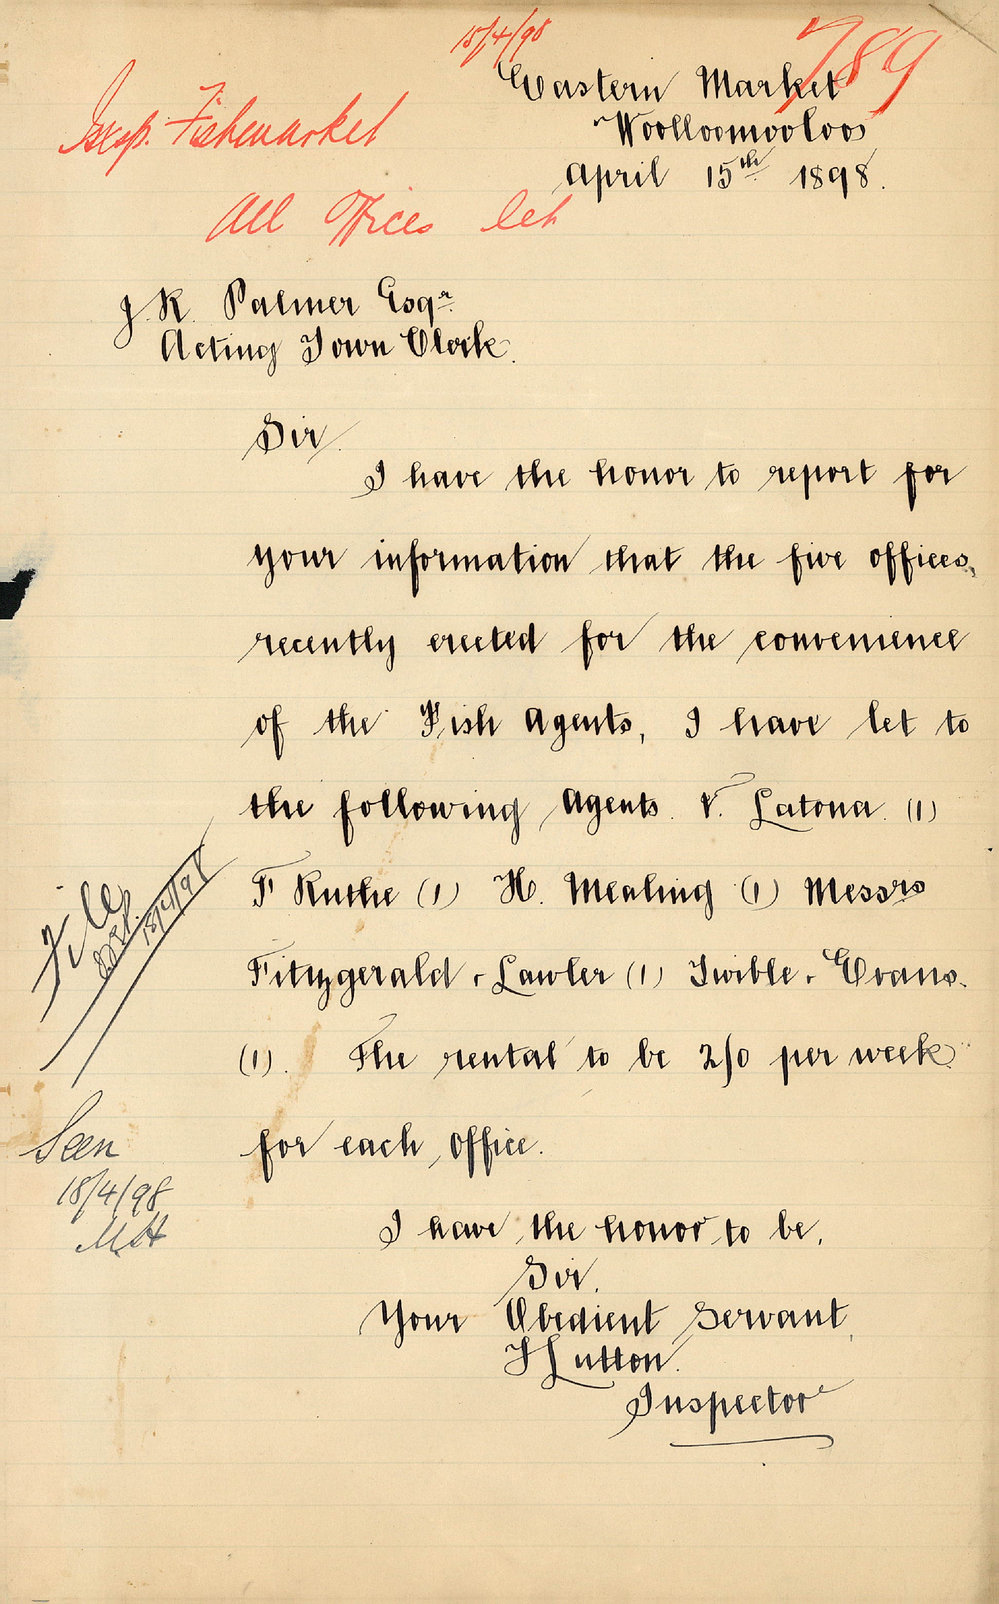 15/4/98
789
Eastern Market
Woolloomooloo
April 15th 1898.
Insp. Fishmarket
All Offices let
J. R. Palmer Esqr.
Acting Town Clerk.
Sir
I have the honor to report for
your information that the five offices,
recently erected for the convenience
of the Fish Agents, I have let to
the following Agents. V. Latona. (1)
F Ruthe (1) H. Mealing (1) Messrs
Fitzgerald & Lawler (1) Twible & Evans.
(1). The rental to be 2/0 per week
for each office.
File
18/4/98
Seen
18/4/98
MH
I have the honor to be,
Sir,
Your Obedient Servant,
Lutton.
Inspector